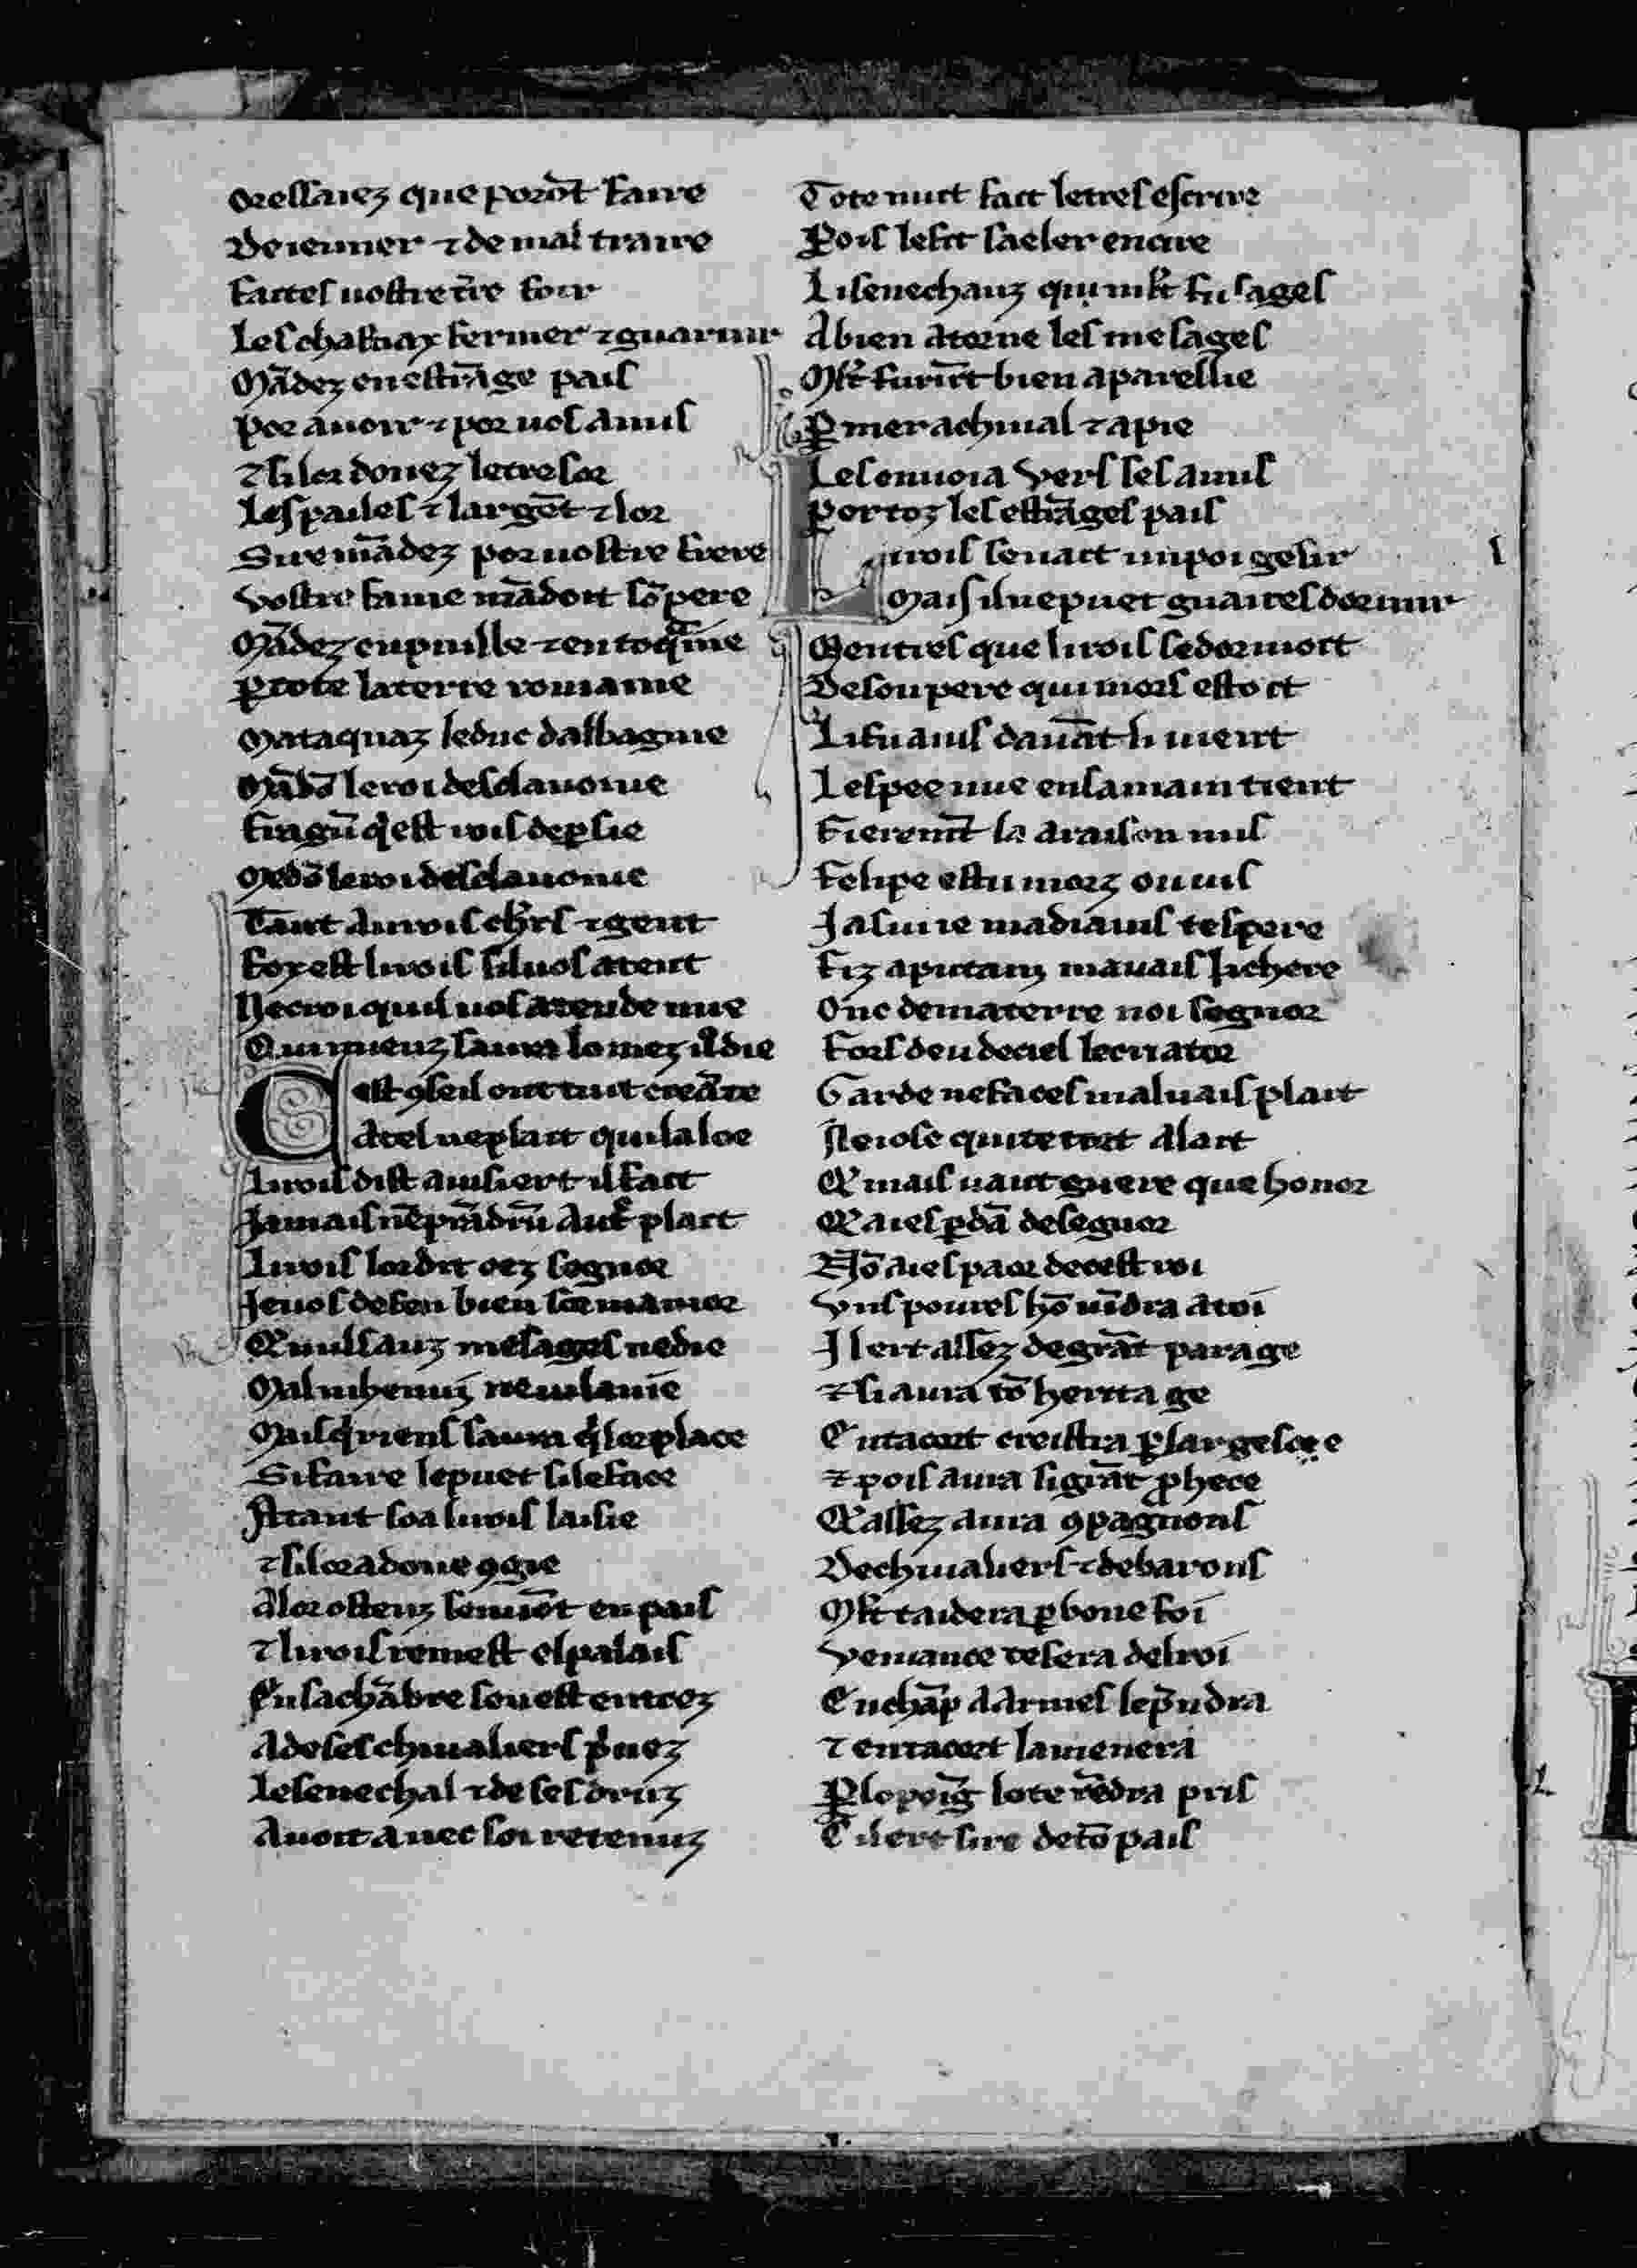 Oressaiez que porōt faire
De ieuner ⁊ de mal traire
Faites uostre t̄re foir
Les chasteax fermer ⁊ guarnir
Mādez en estrāge pais
Por auoir ⁊ por uos amis
⁊ si lor donez le tresor
Les pailes ⁊ largēt ⁊ lor
Sire mādez por uostre frere
Vostre fame mādoit sō pere
Mādez en puille ⁊ en toq̃ne
ꝑ tote la terre romaine
Mataquaz le duc dalbagine
le roi desclauonie
q̓ est rois de ꝑsie
le roi desclauonie
Tant a li rois ch'rs ⁊ gent
Fox est li rois sil uos atent
Ne croi quil uos atende mie
Qui mieuz saura lo mez
Cest ꝯseil ont tuit creāte
A cel ne plait qui la loe
Li rois dist ausi ert il fait
Iamais nē prādrū aut' plait
Li rois lor dit oez segnor
Ie uos defen bien sor mamor
Q̄ nul sauz mesages nedie
Mal ne
Mais q̓ riens saura q̓ lor place
Si faire le puet si le face
Atant so a li rois laisie
⁊ si lor a done ꝯgie
A lor osteuz senuōt en pais
⁊ li rois remest el palais
En sa chābre sen est entrez
A de ses cheualiers p'uez
Le senechal ⁊ de ses druz
Auoit auec soi retenuz
Tote nuit fait letres escrire
Pois les fit saeler en cire
Li senechauz qui mlt fu sages
A bien atorne les mesages
Mlt furēt bien aparellie
ꝑ mer a cheual ⁊ a pie
Les enuoia vers ses amis
Per toz les estrāges pais
Li rois se uait un poi gesir
Mais il ne puet guaires dormir
Mentres que li rois se dormoit
De son pere qui mors estoit
Li fu auis dauāt li uient
Lespee nue en sa main tient
Fieremt̄ la a raison mis
Felipe es tu morz ou uis
Ia sui ie madiauis tes pere
Fiz a putain mauais lichere
Onc de ma terre noi segnor
Fors deu de ciel le criator
Garde ne faces maluais plait
Ne iose qui te tort a lait
Q̄ mais uaut guere que honor
Q̄ aies ꝑdā de segnor
Nō aies paor de cest roi
Vns pomes hō uīdra a toi
Il ert assez de grāt parage
⁊ si aura tō heritage
En ta cort creistra ꝑ largesce
⁊ pois aura si grāt ꝓhece
Q̄ assez aura ꝯpagnons
De cheualiers ⁊ de barons
Mlt taidera ꝑ bone foi
Veniance te fera del roi
En chāp a armes le p̄ndra
⁊ en ta cort lamenera
ꝑ lo poig lo te rēdra pris
Cil ert sire de tō pais